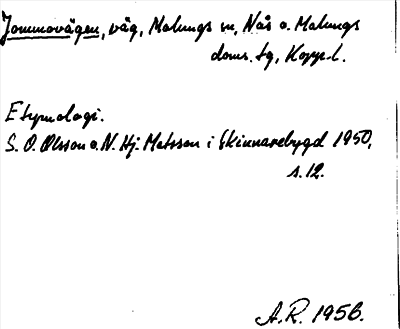 Jommovägen, väg, Malungs sn, Nås o. Malungs
doms. tg, Kopp. l.
Etymologi.
S. O. Olsson o. N. Hj. Matsson i Skinnarebygd 1950,
s. 12.
A. R. 1956.